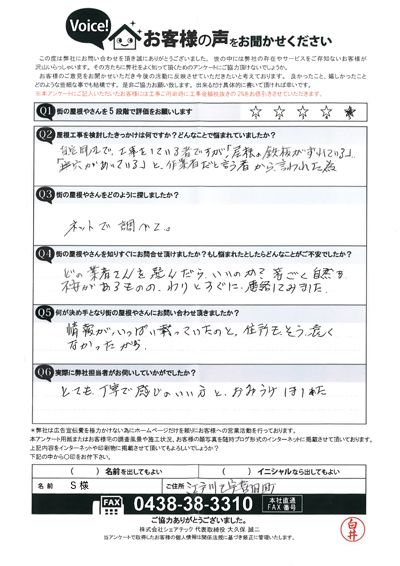 Voice!
お客様の声をお聞かせください
この度は弊社にお問い合わせを頂き誠にありがとうございます。世の中には弊社の存在やサービスをご存知ないお客様が
沢山いらっしゃいます。その方たちに弊社をよく知って頂くためのアンケートにご協力頂けないでしょうか。
お客様のご意見をお聞かせいただき今後の活動に反映させていただきたいと考えております。良かったこと、嬉しかったこと
どのような些細な事でも結構です。是非ご協力お願い致します。
Q1 街の屋根やさんを5段階で評価をお願いします
☆ ☆ ☆ ☆ ★
Q2 屋根工事を検討したきっかけは何ですか?どんなことで悩まれていましたか?
と、作業者だと言う者から、言われた為
Q3 街の屋根やさんをどのように探しましたか?
ネットで調べて。
Q4 街の屋根やさんを知りすぐにお問合せ頂けましたか?もし悩まれたとしたらどんなことがご不安でしたか?
どの業者さんを選んだら、いいのか?
あるものの、わりとすぐに、連絡してみました。
Q5 何が決め手となり街の屋根やさんにお問い合わせ頂きましたか?
情報がいっぱい載っていたのと、住所もそう遠く
なかったから
Q6 実際に弊社担当者がお伺いしていかがでしたか?
とても丁寧で感じのいい方と、おみうけしました
*弊社は広告宣伝費を極力かけない為にホームページだけを頼りにお客様への営業活動を行っております。
本アンケート用紙またはお客様宅の調査風景や施工状況、お客様の顔写真を随時ブログ形式のインターネットに掲載させて頂いております。
上記内容をインターネットや印刷物に掲載させて頂いてもよろしいでしょうか?
下記の中から〇印をお付下さい。
( )名前を出してもよい ( )イニシャルなら出してもよい
名前 S様 ご住所 江戸川区宇喜田町
FAX 0438-38-3310 本社直通 FAX番号
ご協力ありがとうございました。
株式会社シェアテック 代表取締役 大久保 誠二
当アンケートで取得したお客様の個人情報は関係法規に基づき厳正に管理いたします。
白井